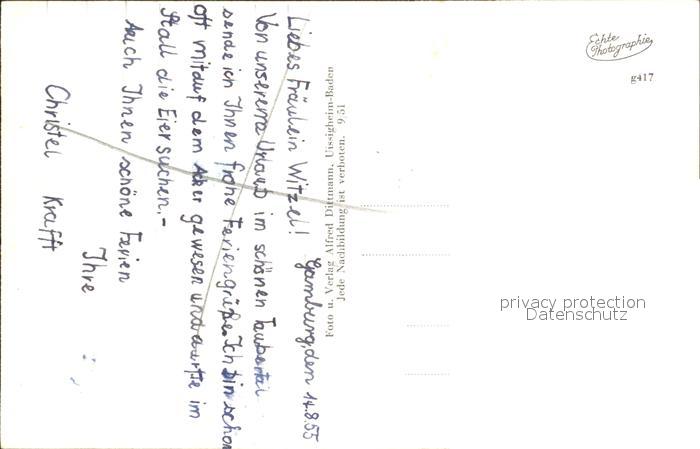 Gamburg, den 14.8.55
Liebes Fräulein Witzel!
Von unserem Urlaub im schönen Taubertal
sende ich Ihnen frohe Feriengrüße. Ich bin schon
oft mit auf dem Acker gewesen und durfte im
Stall die Eier suchen.-
Auch Ihnen schöne Ferien
Ihre
Christel Krafft
Foto u. Verlag Alfred Dittmann, Uissigheim-Baden
Jede Nachbildung ist verboten. 9/51
Echte
Photographie
g417
privacy protection
Datenschutz